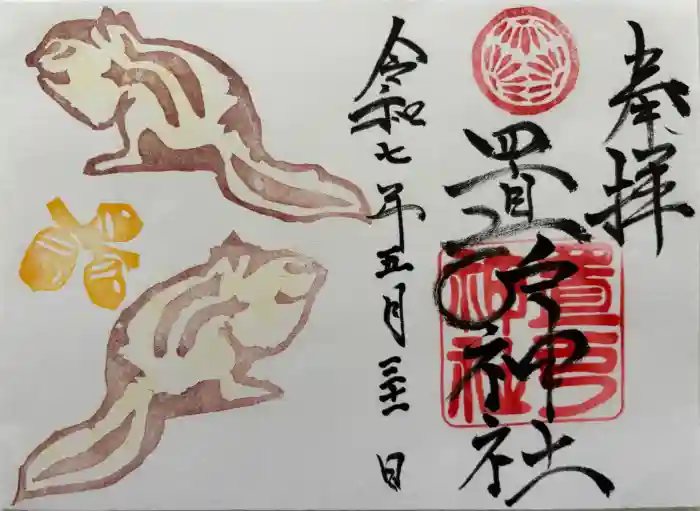 奉拝
置戸神社
置戸
神社
令和七年五月三十一日